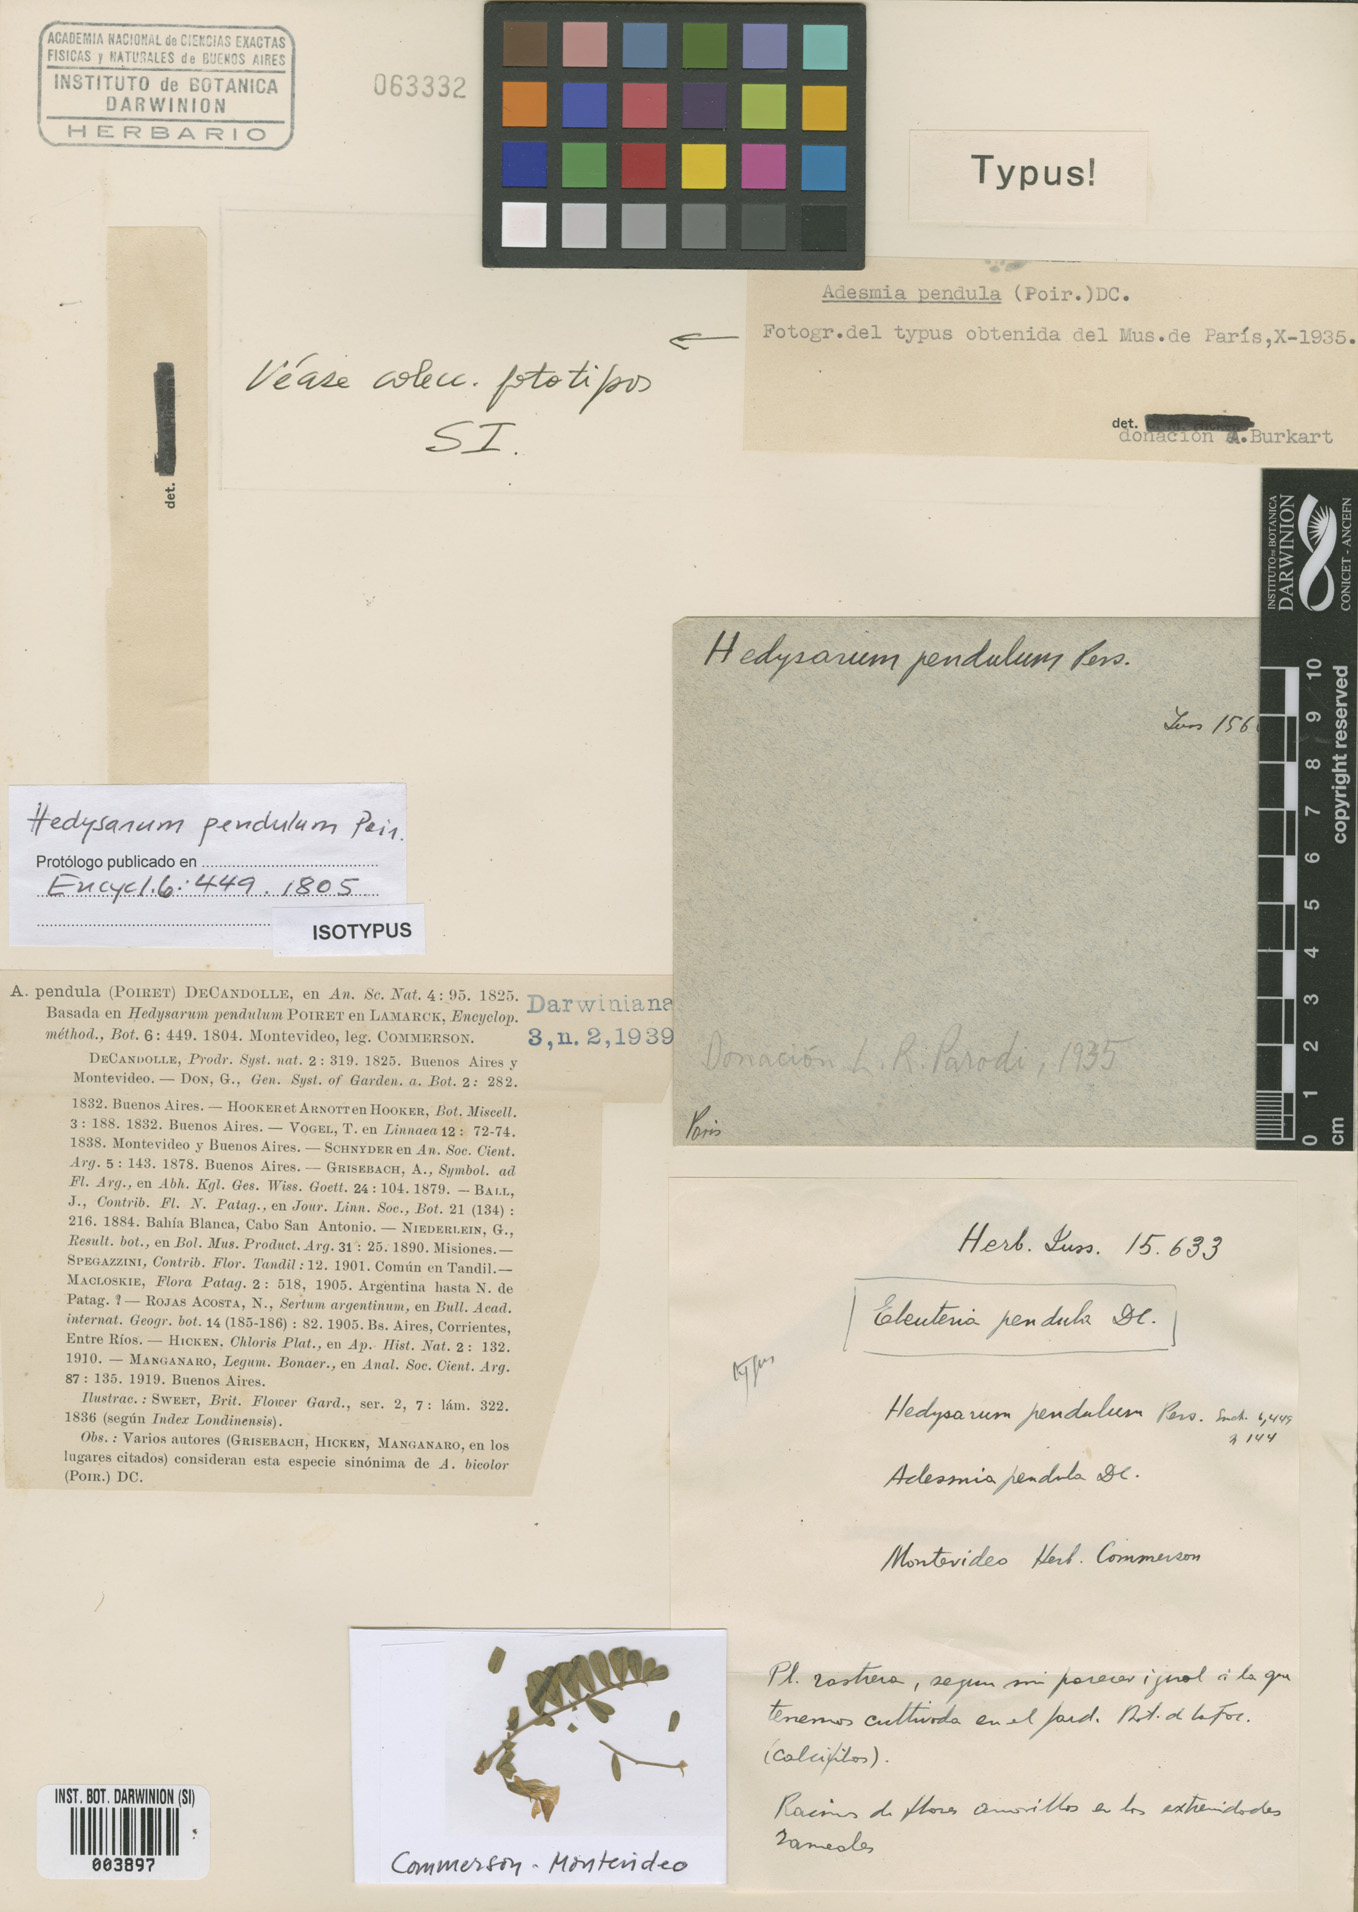 ACADEMIA NACIONAL de CIENCIAS EXACTAS
FISICAS y NATURALES de BUENOS AIRES
INSTITUTO de BOTANICA
DARWINION
HERBARIO
063332
Typus!
Adesmia pendula (Poir.)DC.
Fotogr.del typus obtenida del Mus.de París,X-1935.
det.
donación A.Burkart
Véase colecc. fototipos
SI.
det.
INSTITUTO DE BOTANICA
DARWINION
CONICET - ANCEFN
Hedysarum pendulum Pers.
Juss 156
Donación L. R. Parodi, 1935
Paris
0 1 2 3 4 5 6 7 8 9 10
cm
copyright reserved
Hedysarum pendulum Poir.
Protólogo publicado en
Encycl. 6: 449. 1805
ISOTYPUS
A. pendula (POIRET) DECANDOLLE, en An. Sc. Nat. 4: 95. 1825.
Basada en Hedysarum pendulum POIRET en LAMARCK, Encyclop.
méthod., Bot. 6: 449. 1804. Montevideo, leg. COMMERSON.
Darwiniana
3, n. 2, 1939
DECANDOLLE, Prodr. Syst. nat. 2: 319. 1825. Buenos Aires y
Montevideo. — DON, G., Gen. Syst. of Garden. a. Bot. 2: 282.
1832. Buenos Aires. — HOOKER et ARNOTT en HOOKER, Bot. Miscell.
3: 188. 1832. Buenos Aires. — VOGEL, T. en Linnaea 12: 72-74.
1838. Montevideo y Buenos Aires. — SCHNYDER en An. Soc. Cient.
Arg. 5: 143. 1878. Buenos Aires. — GRISEBACH, A., Symbol. ad
Fl. Arg., en Abh. Kgl. Ges. Wiss. Goett. 24: 104. 1879. — BALL,
J., Contrib. Fl. N. Patag., en Jour. Linn. Soc., Bot. 21 (134) :
216. 1884. Bahía Blanca, Cabo San Antonio. — NIEDERLEIN, G.,
Result. bot., en Bol. Mus. Product. Arg. 31: 25. 1890. Misiones.—
SPEGAZZINI, Contrib. Flor. Tandil: 12. 1901. Común en Tandil.—
MACLOSKIE, Flora Patag. 2: 518, 1905. Argentina hasta N. de
Patag. ? — ROJAS ACOSTA, N., Sertum argentinum, en Bull. Acad.
internat. Geogr. bot. 14 (185-186) : 82. 1905. Bs. Aires, Corrientes,
Entre Ríos. — HICKEN, Chloris Plat., en Ap. Hist. Nat. 2: 132.
1910. — MANGANARO, Legum. Bonaer., en Anal. Soc. Cient. Arg.
87: 135. 1919. Buenos Aires.
Ilustrac.: SWEET, Brit. Flower Gard., ser. 2, 7: lám. 322.
1836 (según Index Londinensis).
Obs.: Varios autores (GRISEBACH, HICKEN, MANGANARO, en los
lugares citados) consideran esta especie sinónima de A. bicolor
(POIR.) DC.
Herb. Juss. 15.633
Eleuteria pendula DC.
typus
Hedysarum pendulum Pers. 6,449
n 144
Adesmia pendula DC.
Montevideo Herb. Commerson
Pl. rastrera, segun mi parecer igual a la que
tenemos cultivada en el Jard. Bot. d la Fac.
(calcifilos).
Racimos de flores amarillos en los extremidades
rameales
Commerson - Montevideo
INST. BOT. DARWINION (SI)
003897